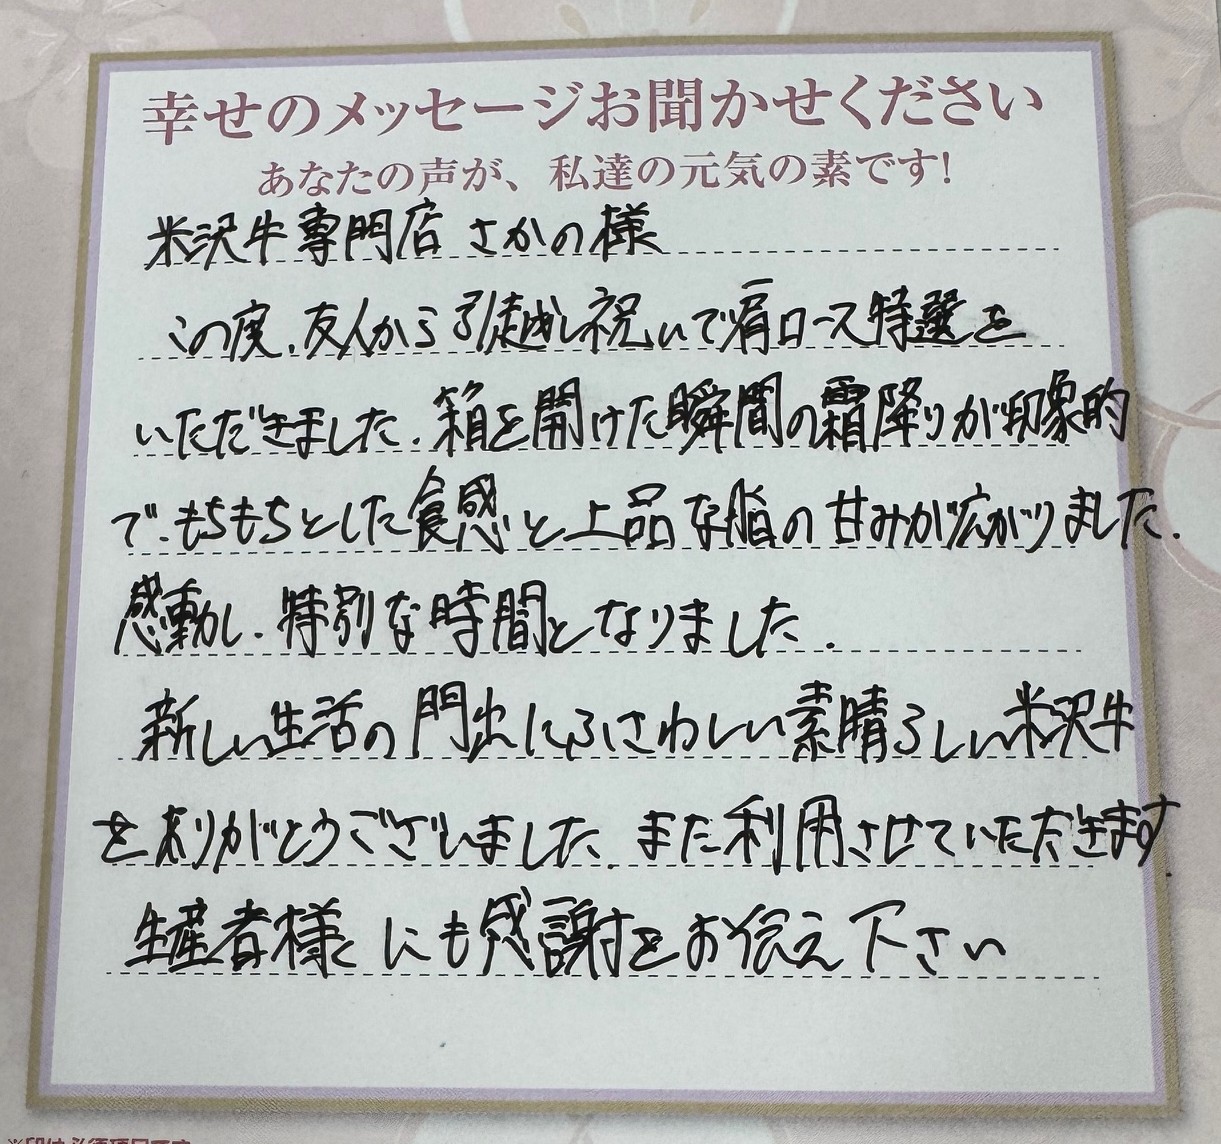 幸せのメッセージお聞かせください
あなたの声が、私達の元気の素です!
米沢牛専門店 さかの様
この度、友人から引越し祝いで肩ロース特選を
いただきました。箱を開けた瞬間の霜降りが印象的
で、もちもちとした食感と上品な脂の甘みが広がりました。
感動し、特別な時間となりました。
新しい生活の門出にふさわしい素晴らしい米沢牛
をありがとうございました。また利用させていただきます。
生産者様にも感謝をお伝え下さい